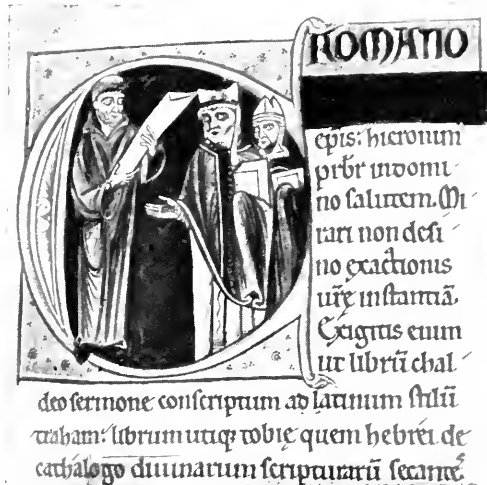 CROMATIO
ep̄is: hieronim
prb̄r in domi
no salutem. Mi
rari non desi
no exactionis
ur̄ę instantiā.
Exigitis enim
ut librū chal
deo sermone conscriptum ad latinum stilū
traham: librum utiq; tobię quem hebrei de
cathalogo diuinarum scripturarū secante